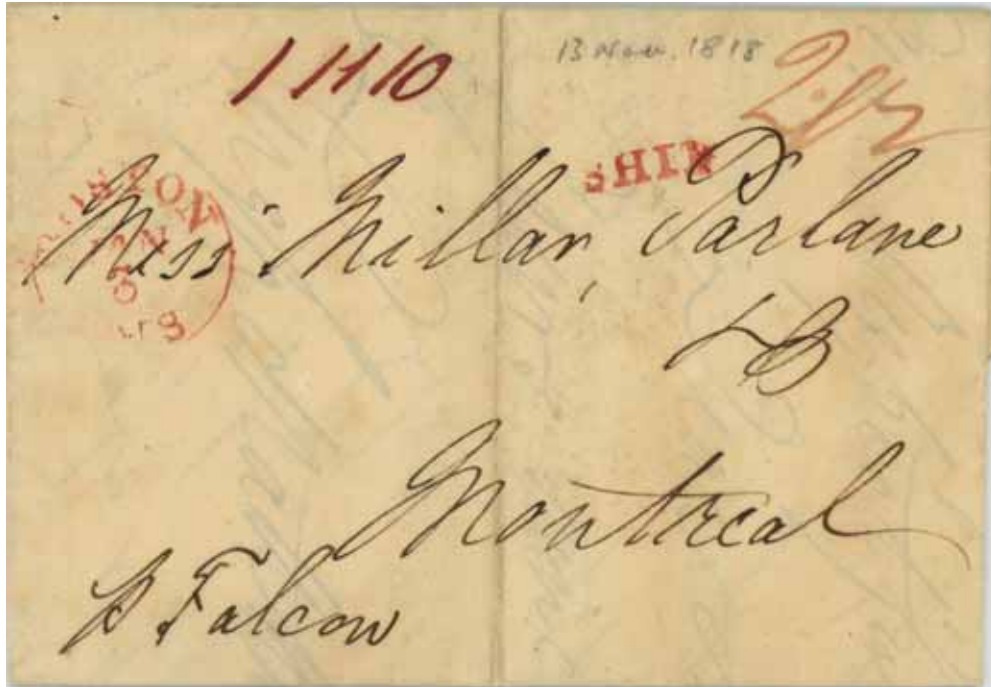 1 H 10
13 1818
SHIP
Messrs Millar, Parlane
& Co
Montreal
p Falcon